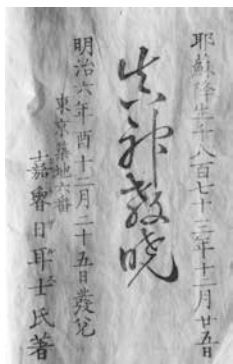 耶蘇降生千八百七十三年十二月廿五日
真神教暁
明治六年酉十二月二十五日發兌
東京築地六番
嘉魯日耳士氏著